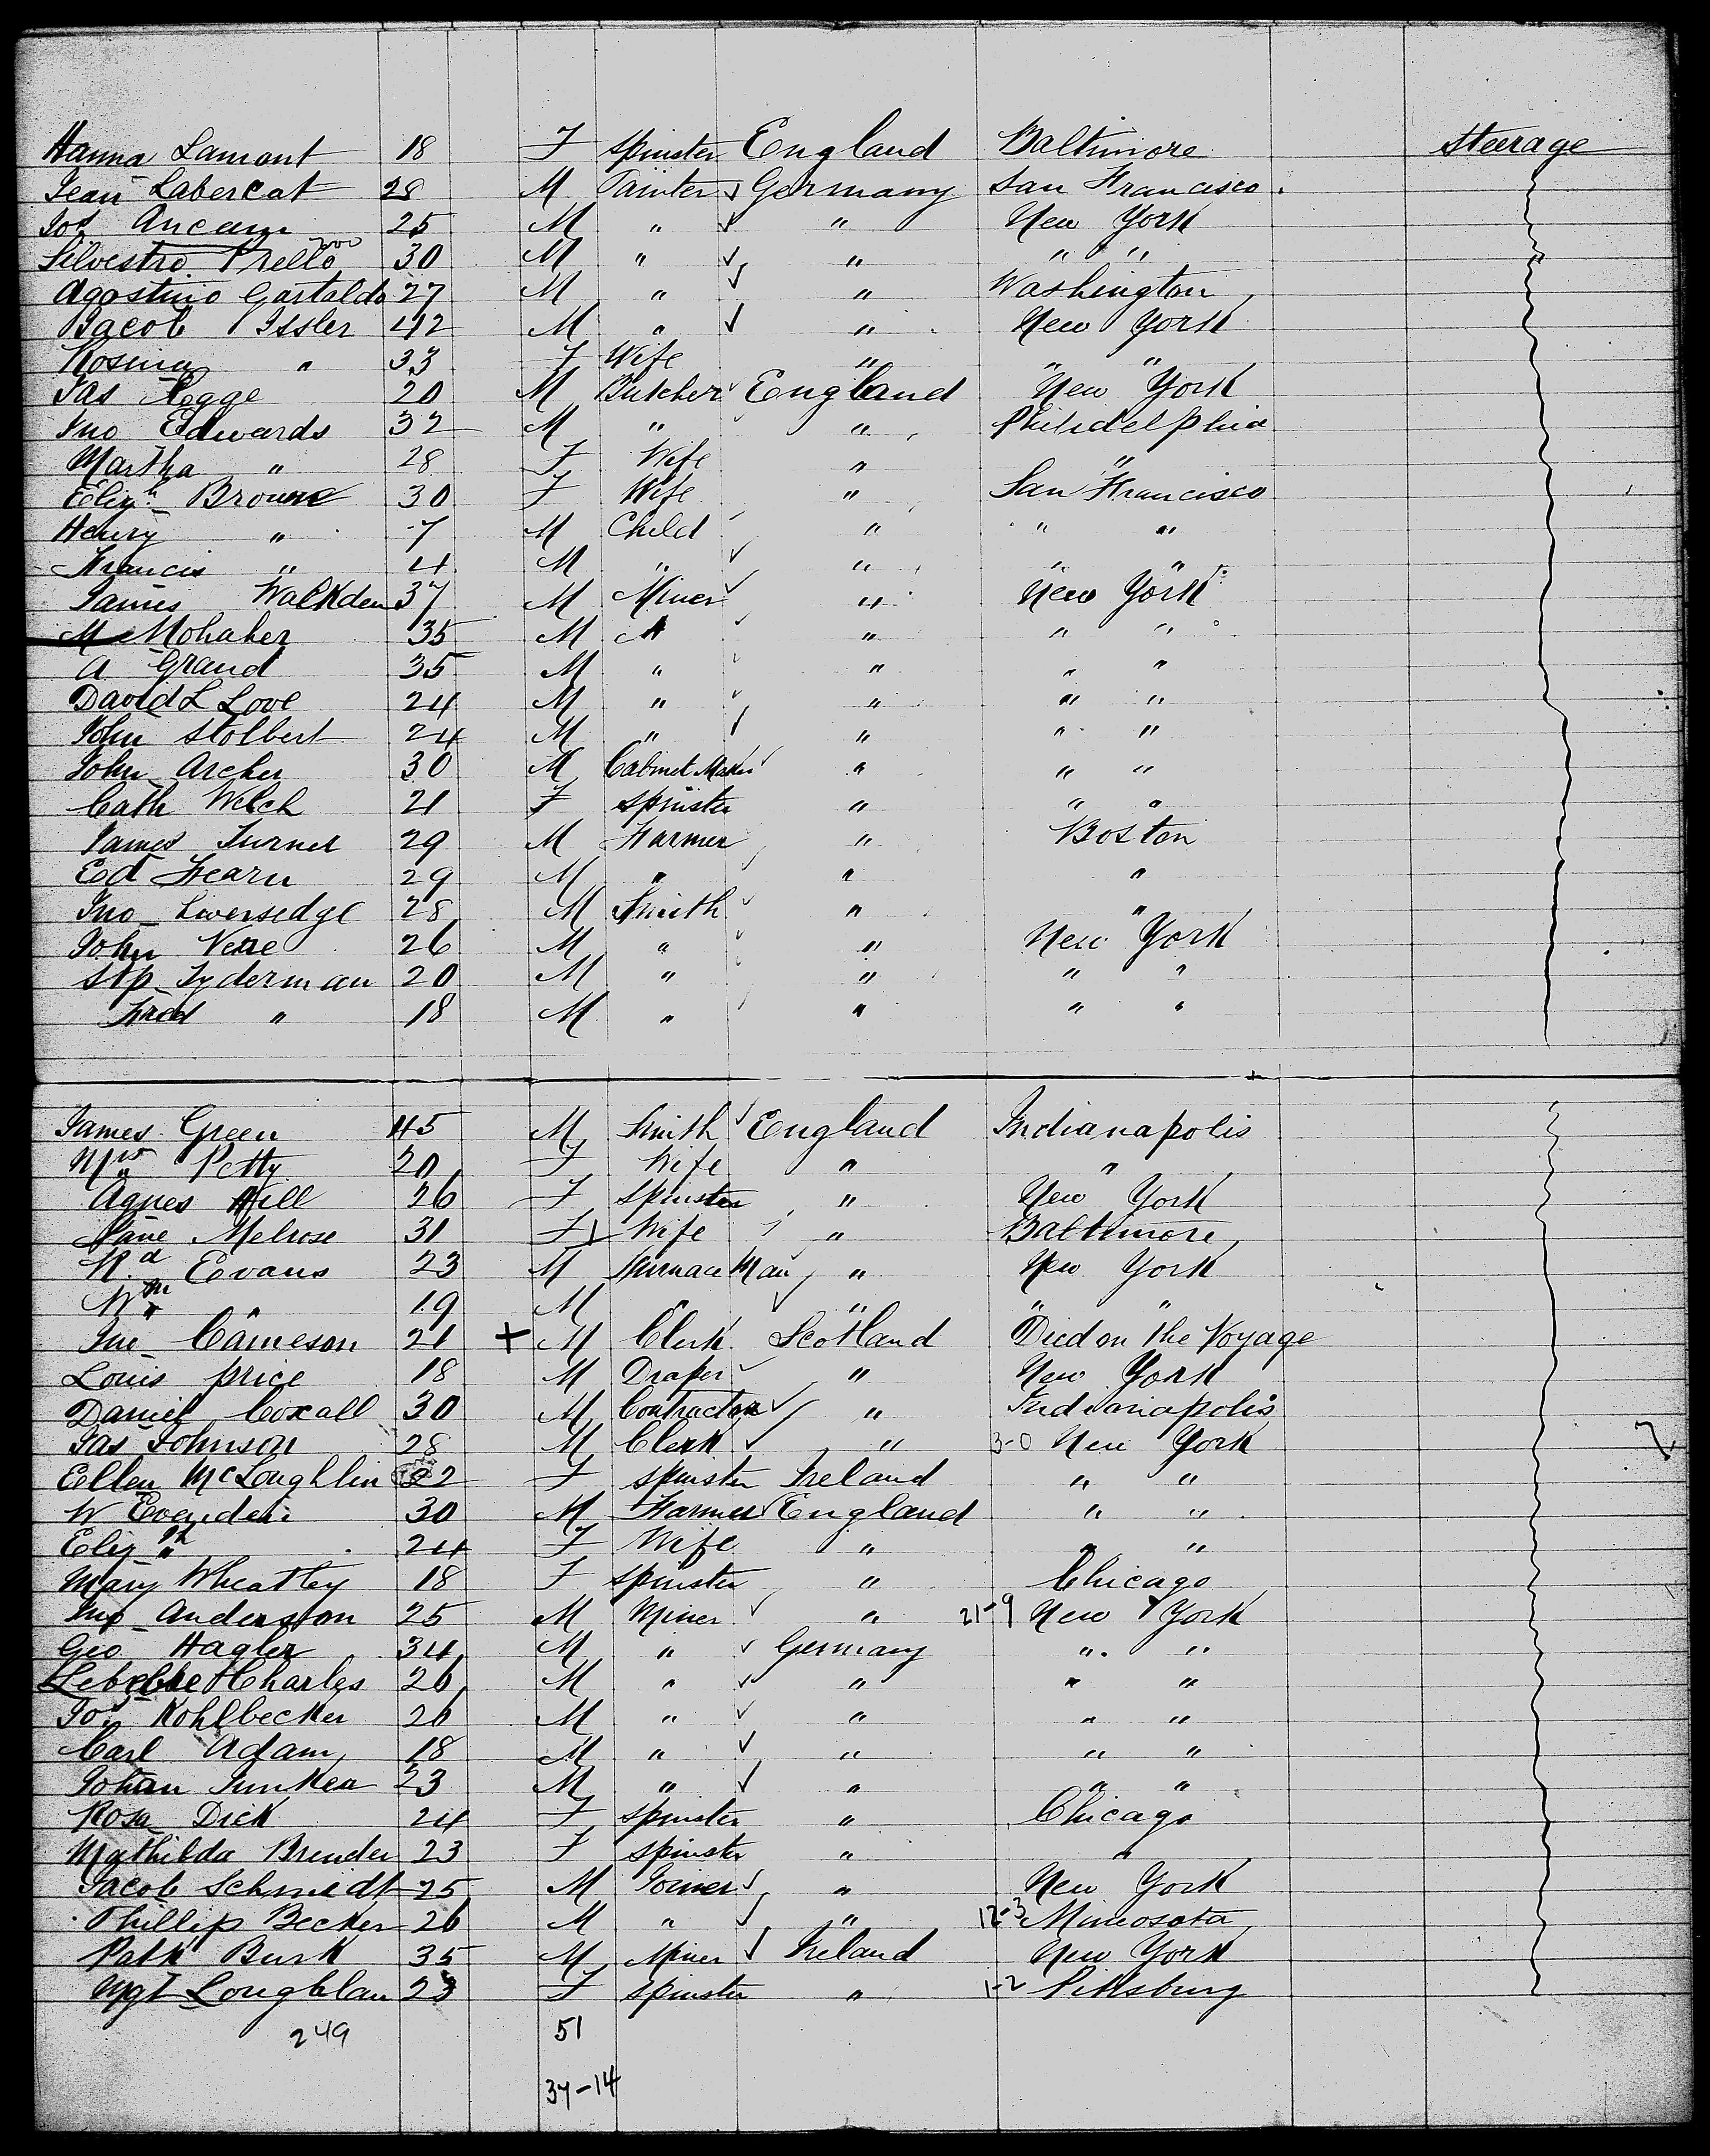 Hanna Lamont 18 F Spinster England Baltimore Steerage
Jean Labercat 28 M Painter Germany San Francisco
Jos Ancam 25 M " " New York
Silvestro Prello 30 M " " " "
Agostino Gastaldo 27 M " " Washington
Jacob Issler 42 M " " New York
Rosina " 33 F Wife " " "
Jas Legge 20 M Butcher England New York
Jno Edwards 32 M " " Philidelphia
Martha " 28 F Wife " "
Elizh Browne 30 F Wife " San Francisco
Henry " 7 M Child " " "
Francis " 4 M " " " "
James Walkden 37 M Miner " New York
M Mohaher 35 M " " "
A Grand 35 M " " " "
David L Love 24 M " " " "
John Stolbert 24 M " " " "
John Archer 30 M Cabinet Maker " " "
Cath Welch 21 F Spinster " " "
James Turner 29 M Farmer " Boston
Ed Hearn 29 M " " "
Jno Liversedge 28 M Smith " "
John Vere 26 M " " New York
Stp Lyderman 20 M " " " "
Fred " 18 M " " " "
James Green 45 M Smith England Indianapolis
Mrs Petty 20 F Wife " "
Agnes Hill 26 F Spinster " New York
Jane Melrose 31 F Wife " Baltimore
Rd Evans 23 M Furnace Man " New York
Wm " 19 M " " " "
Jno Cameson 21 + M Clerk Scotland Died on the Voyage
Louis Price 18 M Draper " New York
Daniel Coxall 30 M Contractor " Indianapolis
Jas Johnson 28 M Clerk " 3-0 New York
Ellen McLoughlin 22 F Spinster Ireland " "
W Evenden 30 M Farmer England " "
Elizth " 24 F Wife " " "
Mary Wheatley 18 F Spinster " Chicago
Jno Anderston 25 M Miner " 21-9 New York
Geo Hagler 34 M " Germany " "
Charles 26 M " " " "
Jos Kohlbecker 26 M " " " "
Carl Adam 18 M " " " "
Johan Junker 23 M " " " "
Rosa Dick 24 F Spinster " Chicago
Mathilda Brender 23 F Spinster " "
Jacob Schmidt 25 M Joiner " New York
Phillip Becker 26 M " " 12-3 Minosota
Patk Burk 35 M Miner Ireland New York
Mgt Loughlan 23 F Spinster " 1-2 Pittsburg
249 51
37-14